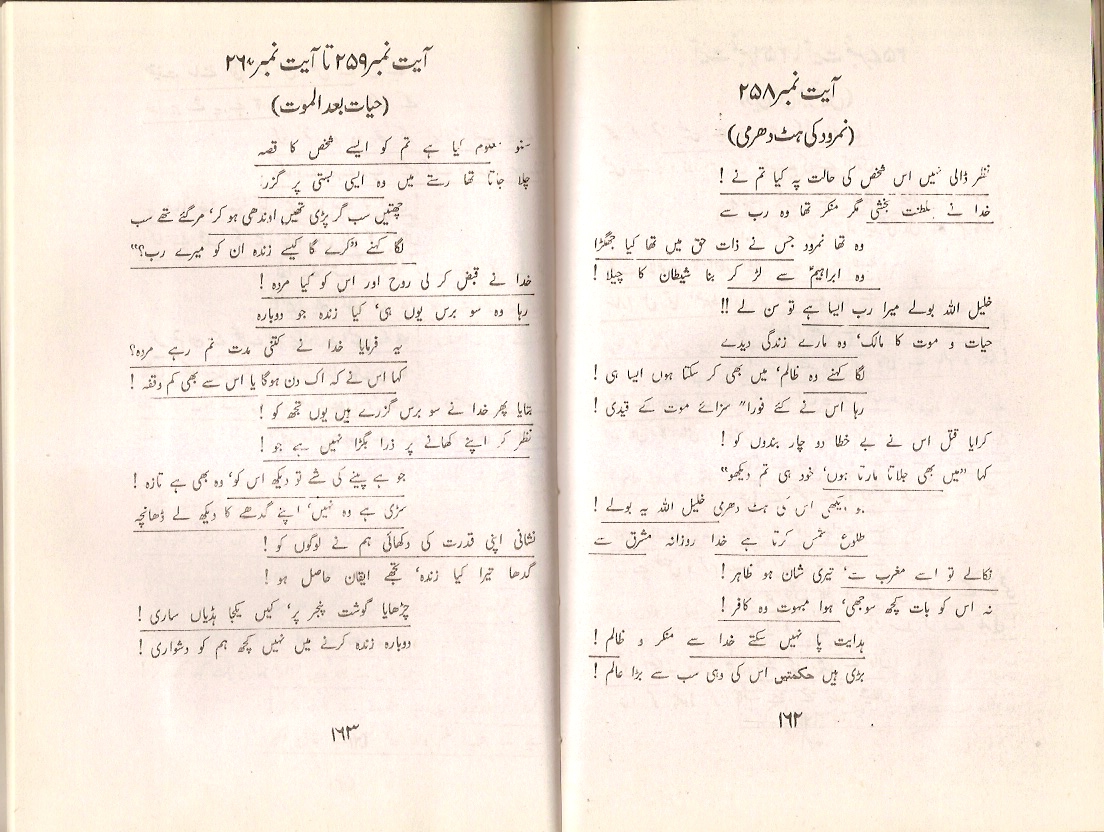 آیت نمبر ۲۵۸
(نمرود کی ہٹ دھرمی)
نظر ڈالی نہیں اس شخص کی حالت پہ کیا تم نے !
خدا نے سلطنت بخشی مگر منکر تھا وہ رب سے
وہ تھا نمرود جس نے ذات حق میں تھا کیا جھگڑا
وہ ابراہیمؑ سے لڑ کر بنا شیطان کا چیلا !
خلیل اللہ بولے میرا رب ایسا ہے تو سن لے !!
حیات و موت کا مالک‘ وہ مارے زندگی دیدے
لگا کہنے وہ ظالم‘ میں بھی کر سکتا ہوں ایسا ہی !
رہا اس نے کئے فورا" سزائے موت کے قیدی !
کرایا قتل اس نے بے خطا دو چار بندوں کو !
کہا "میں بھی جلاتا مارتا ہوں‘ خود ہی تم دیکھو"
دیکھی اس کی ہٹ دھرمی خلیل اللہ یہ بولے !
طلوع شمس کرتا ہے خدا روزانہ مشرق سے
نکالے تو اسے مغرب سے‘ تیری شان ہو ظاہر !
نہ اس کو بات کچھ سوجھی‘ ہوا مبہوت وہ کافر !
ہدایت پا نہیں سکتے خدا سے منکر و ظالم !
بڑی ہیں حکمتیں اس کی وہی سب سے بڑا عالم !
۱۶۲
آیت نمبر ۲۵۹ تا آیت نمبر ۲۶۰
(حیات بعد الموت)
سنو معلوم کیا ہے تم کو ایسے شخص کا قصہ
چلا جاتا تھا رستے میں وہ ایسی بستی پر گزرا
چھتیں سب گر پڑی تھیں اوندھی ہو کر‘ مر گئے تھے سب
لگا کہنے "کرے گا کیسے زندہ ان کو میرے رب؟"
خدا نے قبض کر لی روح اور اس کو کیا مردہ !
رہا وہ سو برس یوں ہی‘ کیا زندہ جو دوبارہ
یہ فرمایا خدا نے کتنی مدت تم رہے مردہ؟
کہا اس نے کہ اک دن ہوگا یا اس سے بھی کم وقفہ !
بتایا پھر خدا نے سو برس گزرے ہیں یوں تجھ کو !
نظر کر اپنے کھانے پر ذرا بگڑا نہیں ہے جو !
جو ہے پینے کی شے تو دیکھ اس کو‘ وہ بھی ہے تازہ !
سڑی ہے وہ نہیں‘ اپنے گدھے کا دیکھ لے ڈھانچہ
نشانی اپنی قدرت کی دکھائی ہم نے لوگوں کو !
گدھا تیرا کیا زندہ‘ تجھے ایقان حاصل ہو !
چڑھایا گوشت پنجر پر‘ کیں یکجا ہڈیاں ساری !
دوبارہ زندہ کرنے میں نہیں کچھ ہم کو دشواری !
۱۶۳